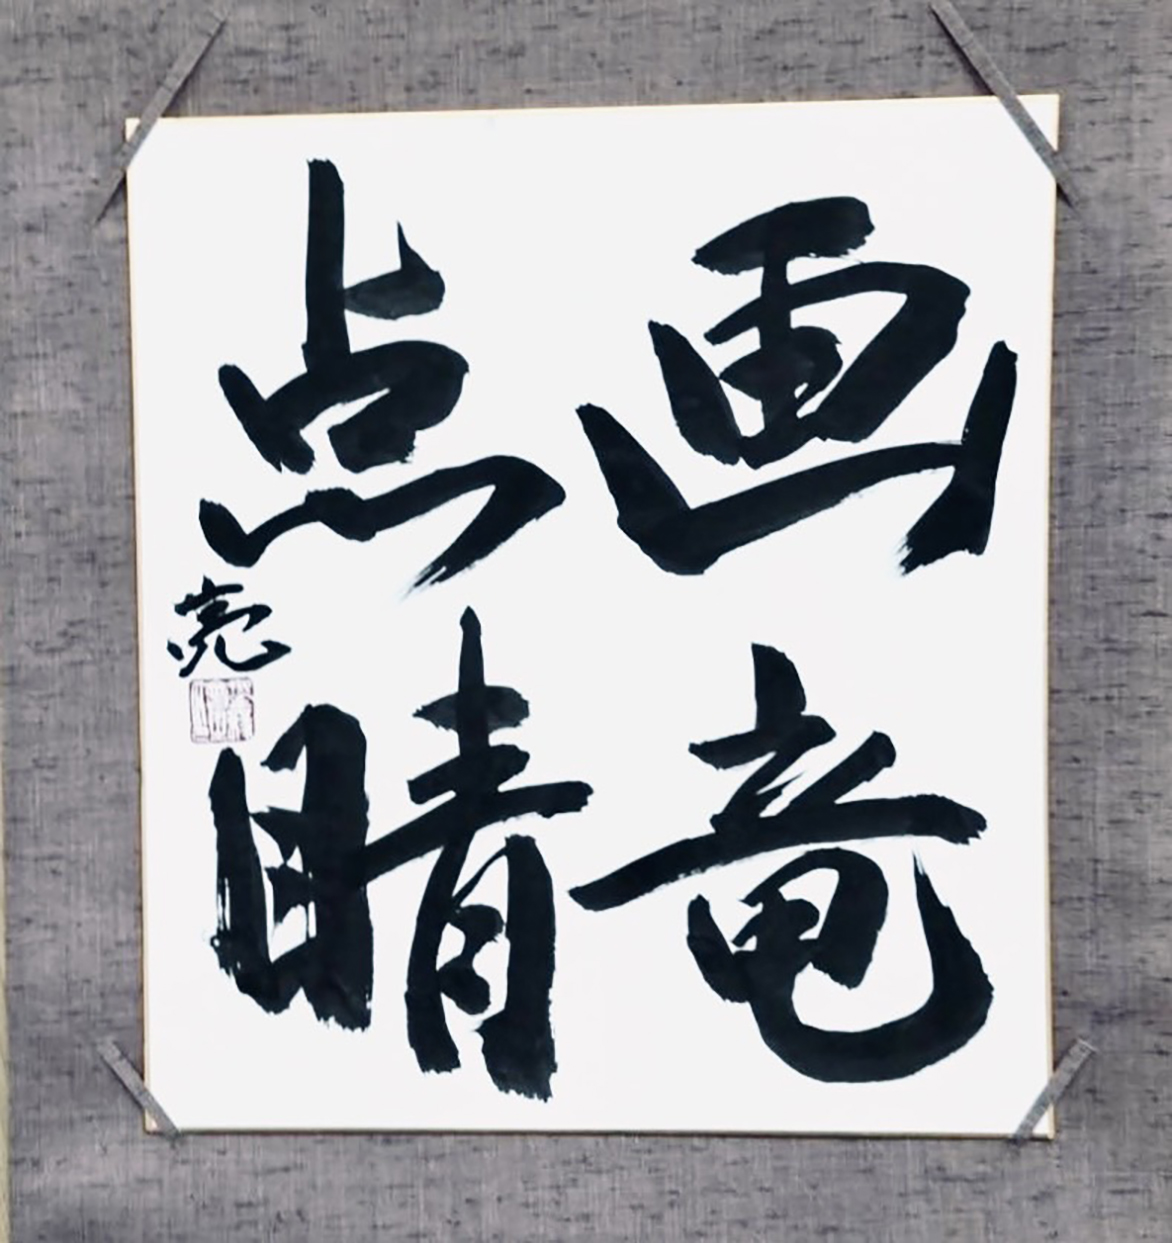 画竜
点睛
亮